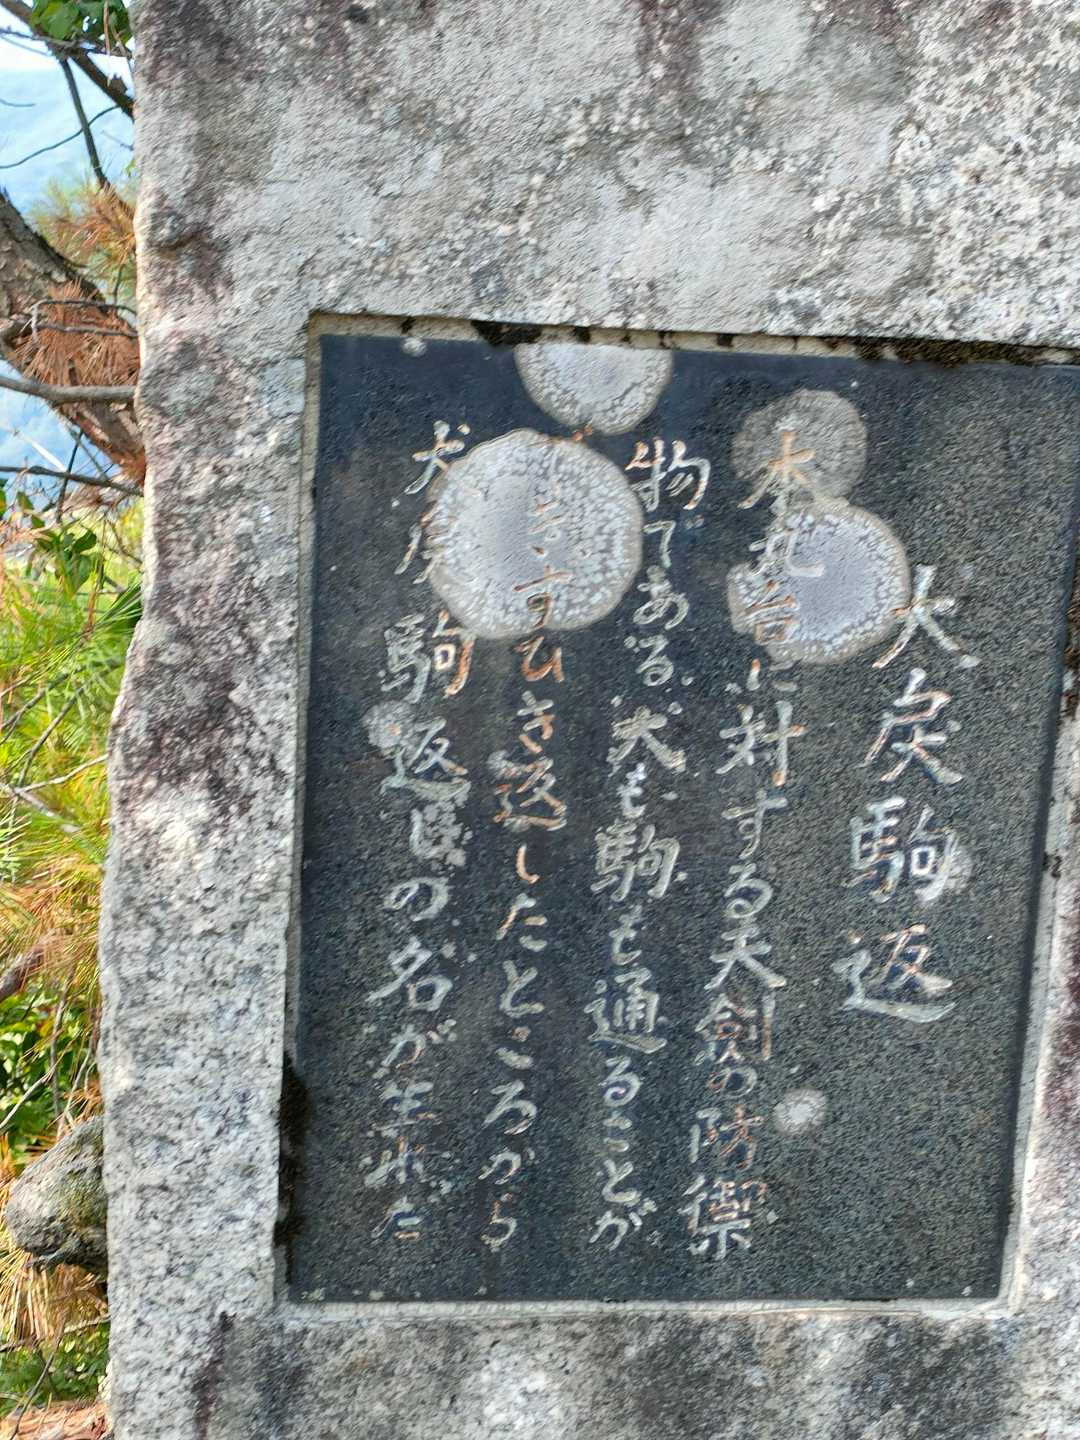 犬戻駒返
本丸台に対する天剣の防禦
物である 犬も駒も通ることが
できずひき返したところから
犬戻駒返の名が生れた